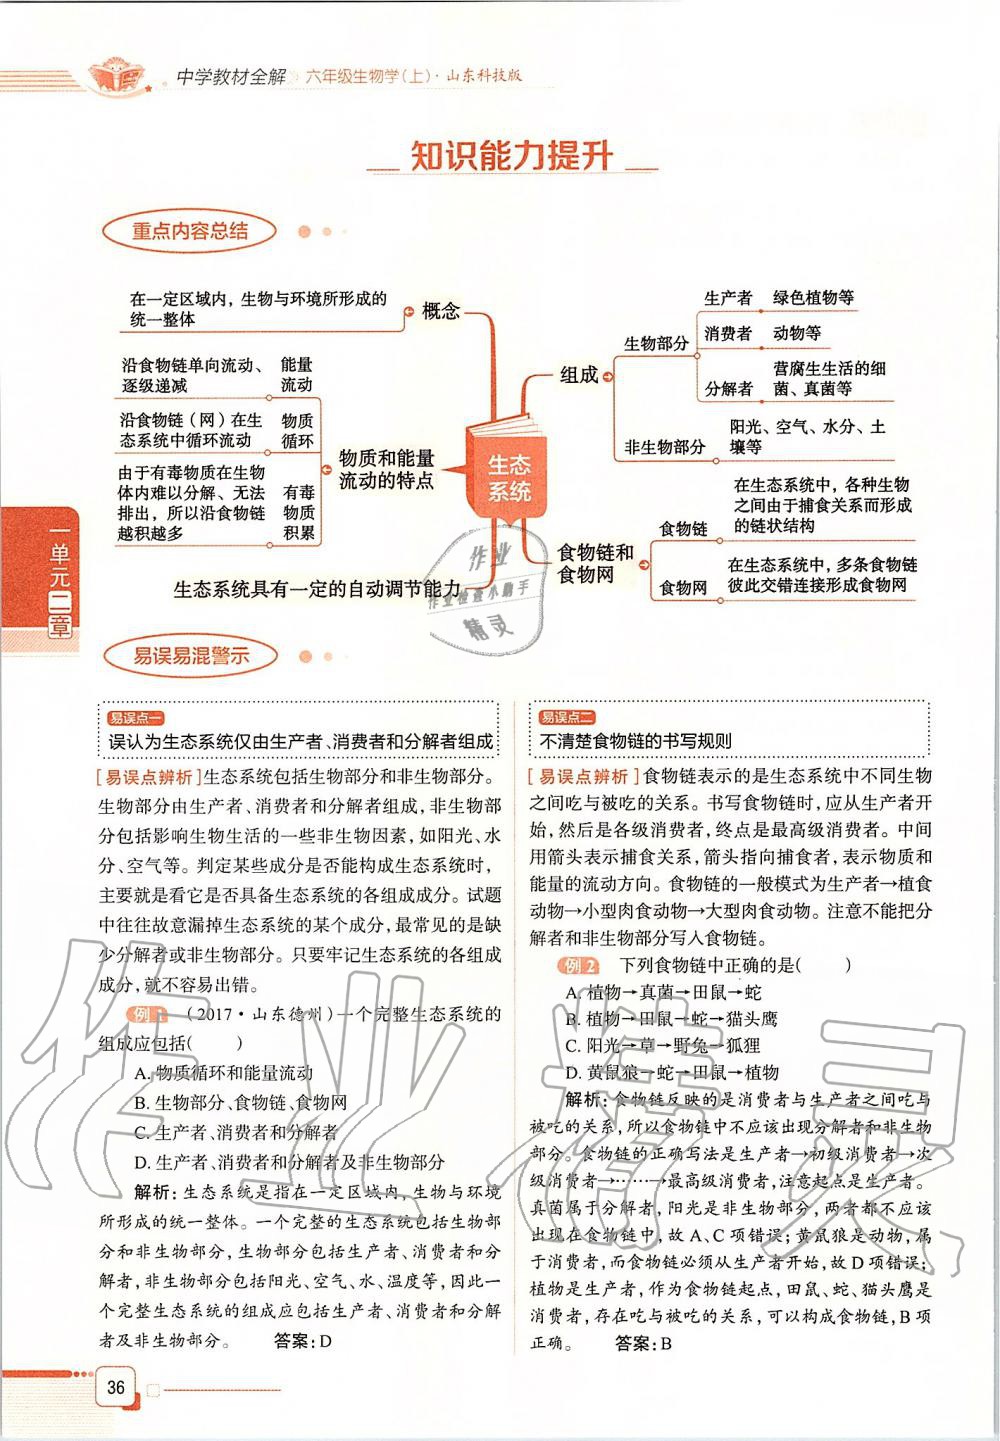 中学教材全解 六年级生物学(上)·山东科技版
知识能力提升
重点内容总结
在一定区域内，生物与环境所形成的
统一整体
概念
沿食物链单向流动、
逐级递减
能量
流动
沿食物链（网）在生
态系统中循环流动
物质
循环
由于有毒物质在生物
体内难以分解、无法
排出，所以沿食物链
越积越多
有毒
物质
积累
物质和能量
流动的特点
生态系统具有一定的自动调节能力
生态
系统
组成
生物部分
生产者 绿色植物等
消费者 动物等
分解者
营腐生生活的细
菌、真菌等
非生物部分
阳光、空气、水分、土
壤等
食物链和
食物网
食物链
在生态系统中，各种生物
之间由于捕食关系而形成
的链状结构
食物网
在生态系统中，多条食物链
彼此交错连接形成食物网
作业
作业检查小助手
精灵
一单元二章
易误易混警示
易误点一
误认为生态系统仅由生产者、消费者和分解者组成
[易误点辨析]生态系统包括生物部分和非生物部分。
生物部分由生产者、消费者和分解者组成,非生物部
分包括影响生物生活的一些非生物因素,如阳光、水
分、空气等。判定某些成分是否能构成生态系统时,
主要就是看它是否具备生态系统的各组成成分。试题
中往往故意漏掉生态系统的某个成分,最常见的是缺
少分解者或非生物部分。只要牢记生态系统的各组成
成分,就不容易出错。
例1 (2017·山东德州)一个完整生态系统的
组成应包括( )
A. 物质循环和能量流动
B. 生物部分、食物链、食物网
C. 生产者、消费者和分解者
D. 生产者、消费者和分解者及非生物部分
解析:生态系统是指在一定区域内,生物与环境
所形成的统一整体。一个完整的生态系统包括生物部
分和非生物部分,生物部分包括生产者、消费者和分
解者,非生物部分包括阳光、空气、水、温度等,因此一
个完整生态系统的组成应包括生产者、消费者和分解
者及非生物部分。 答案:D
易误点二
不清楚食物链的书写规则
[易误点辨析]食物链表示的是生态系统中不同生物
之间吃与被吃的关系。书写食物链时,应从生产者开
始,然后是各级消费者,终点是最高级消费者。中间
用箭头表示捕食关系,箭头指向捕食者,表示物质和
能量的流动方向。食物链的一般模式为生产者→植食
动物→小型肉食动物→大型肉食动物。注意不能把分
解者和非生物部分写入食物链。
例2 下列食物链中正确的是( )
A. 植物→真菌→田鼠→蛇
B. 植物→田鼠→蛇→猫头鹰
C. 阳光→草→野兔→狐狸
D. 黄鼠狼→蛇→田鼠→植物
解析:食物链反映的是消费者与生产者之间吃与
被吃的关系,所以食物链中不应该出现分解者和非生物
部分。食物链的正确写法是生产者→初级消费者→次
级消费者→……→最高级消费者,注意起点是生产者。
真菌属于分解者,阳光是非生物部分,两者都不应该
出现在食物链中,故A、C项错误;黄鼠狼是动物,属
于消费者,而食物链必须从生产者开始,故D项错误;
植物是生产者,作为食物链起点,田鼠、蛇、猫头鹰是
消费者,存在吃与被吃的关系,可以构成食物链,B项
正确。 答案:B
36
作业精灵